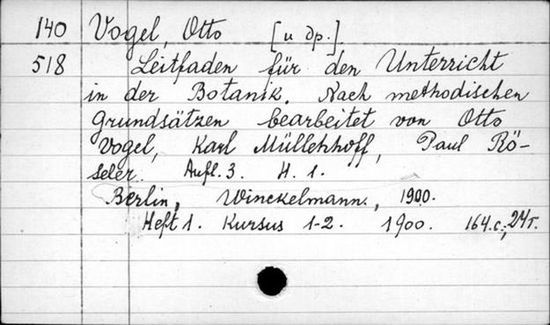 140 Vogel, Otto [и др.]
518 Leitfaden für den Unterricht
in der Botanik. Nach methodischen
Grundsätzen bearbeitet von Otto
Vogel, Karl Müllenhoff, Paul Rö-
seler. Aufl. 3. H. 1.
Berlin, Winckelmann, 1900.
Heft 1. Kursus 1-2. 1900. 164 с.; 24 т.